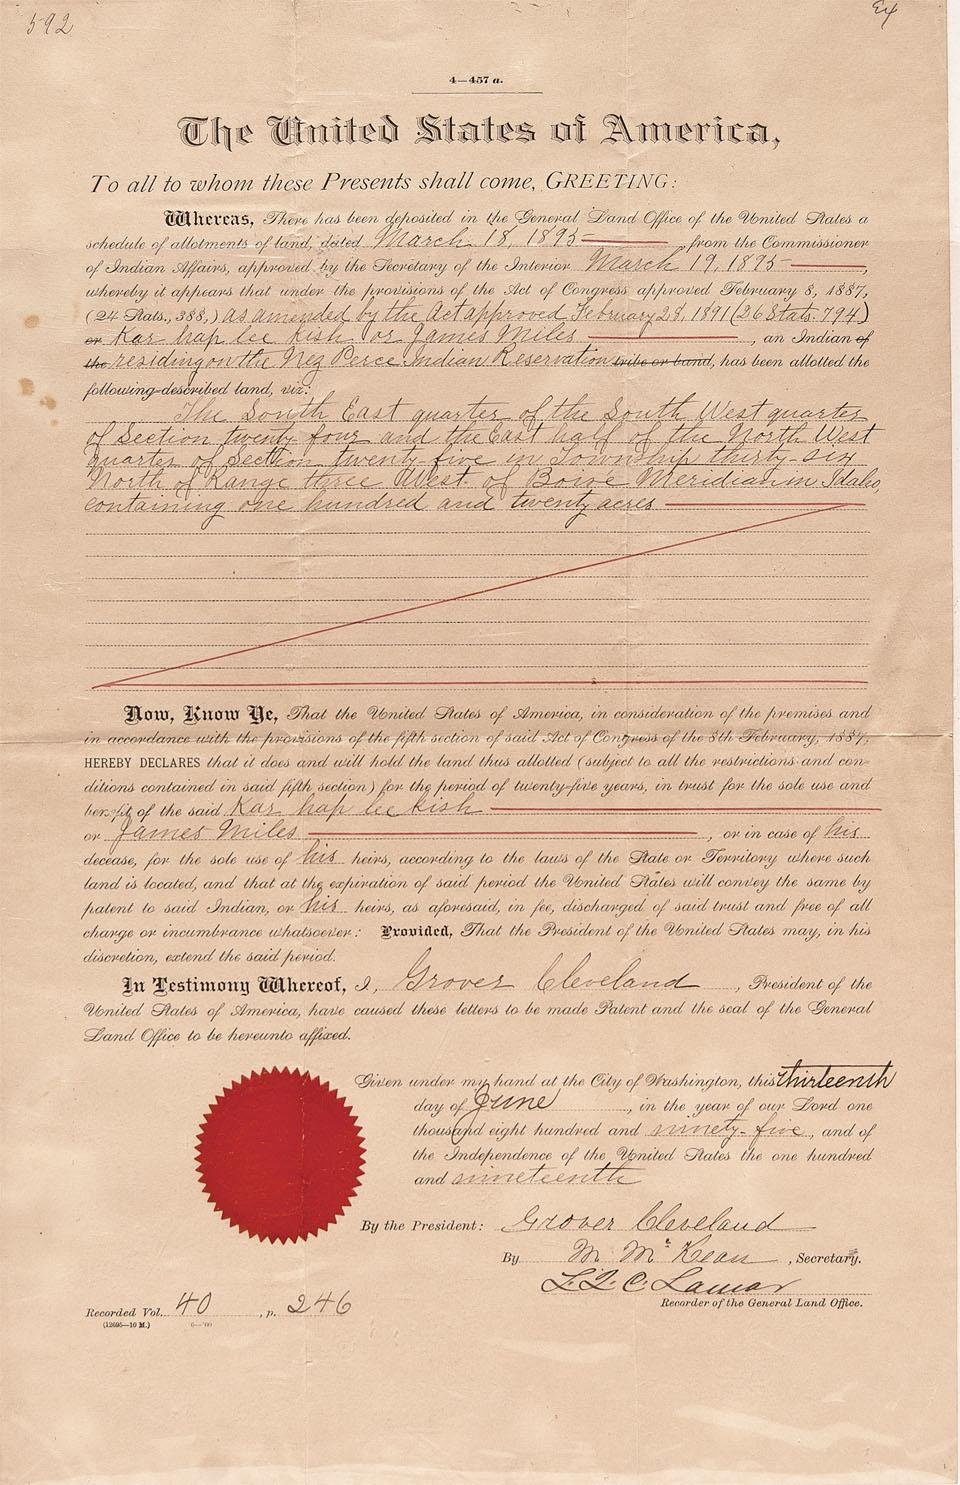 592
4—457 a.
The United States of America,
To all to whom these Presents shall come, GREETING:
Whereas, There has been deposited in the General Land Office of the United States a
schedule of allotments of land, dated March 18, 1895 , from the Commissioner
of Indian Affairs, approved by the Secretary of the Interior March 19, 1895 ,
whereby it appears that under the provisions of the Act of Congress approved February 8, 1887,
(24 Stats., 388,) as amended by the Act approved February 28, 1891 (26 Stats. 794)
or Kar hap lee kish or James Miles , an Indian of
the residing on the Nez Perce Indian Reservation tribe or band, has been allotted the
following-described land, viz:
The South East quarter of the South West quarter
of Section twenty four and the East half of the North West
quarter of Section twenty-five in Township thirty-six
North of Range three West of Boise Meridian in Idaho,
containing one hundred and twenty acres
Now, Know Ye, That the United States of America, in consideration of the premises and
in accordance with the provisions of the fifth section of said Act of Congress of the 8th February, 1887,
HEREBY DECLARES that it does and will hold the land thus allotted (subject to all the restrictions and con-
ditions contained in said fifth section) for the period of twenty-five years, in trust for the sole use and
benefit of the said Kar hap lee kish
or James Miles , or in case of his
decease, for the sole use of his heirs, according to the laws of the State or Territory where such
land is located, and that at the expiration of said period the United States will convey the same by
patent to said Indian, or his heirs, as aforesaid, in fee, discharged of said trust and free of all
charge or incumbrance whatsoever: Provided, That the President of the United States may, in his
discretion, extend the said period.
In Testimony Whereof, I, Grover Cleveland , President of the
United States of America, have caused these letters to be made Patent and the seal of the General
Land Office to be hereunto affixed.
Given under my hand at the City of Washington, this thirteenth
day of June , in the year of our Lord one
thousand eight hundred and ninety-five, and of
the Independence of the United States the one hundred
and nineteenth
By the President: Grover Cleveland
By M. McKean , Secretary.
L. Q. C. Lamar
Recorder of the General Land Office.
Recorded Vol. 40 , p. 246
(12695—10 M.)